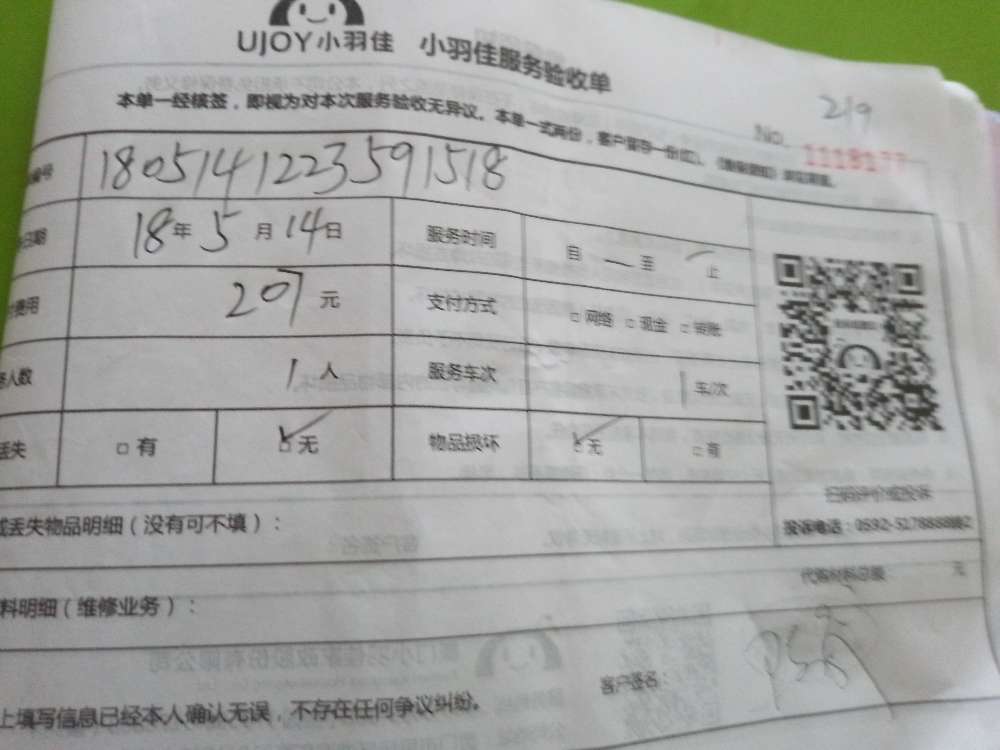 UJOY小羽佳 小羽佳服务验收单
219
本单一经核签，即视为对本次服务验收无异议。本单一式两份，客户留存一份
No. 1118177
编号 180514122359 1518
日期 18年5月14日 服务时间 自 — 至 — 止
费用 207元 支付方式 □网络 □现金 □转账
人数 1人 服务车次 1车/次
丢失 □有 ☑无 物品损坏 ☑无 □有
扫码评价或投诉
丢失物品明细（没有可不填）：
投诉电话：0592-5178888
代购材料总额 元
料明细（维修业务）：
客户签名：
上填写信息已经本人确认无误，不存在任何争议纠纷。